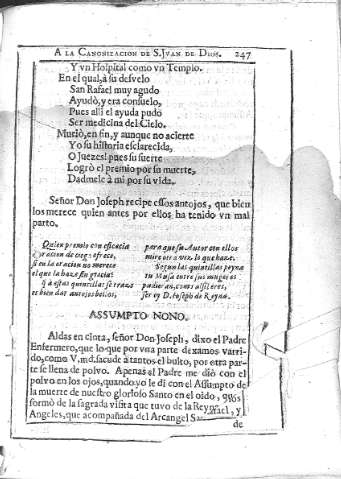 A LA CANONIZACION DE S. JVAN DE DIOS. 247
Y vn Hospital como vn Templo.
En el qual, à su desvelo
San Rafael muy agudo
Ayudò, y era consuelo,
Pues alli el ayuda pudo
Ser medicina del Cielo.
Muriò, en fin, y aunque no acierte
Yo su historia esclarecida,
O Juezes! pues su suerte
Logrò el premio por su muerte,
Dadmele à mi por su vida.
Señor Don Joseph recipe essos antojos, que bien
los merece quien antes por ellos ha tenido vn mal
parto.
Quien premio con eficacia
oracion de ciego ofrece,
si en la oracion no merece
el que la haze sin gracia?
y à estas quintillas se
es bien dar antojos
para que su Autor con ellos
mire otra vez, lo que haze.
Segun las quintillas peyna
tu Musa entre sus
como alfileres,
ser y D. Joseph de Reyna.
ASSUMPTO NONO.
Aldas en cinta, señor Don Joseph, dixo el Padre
Enfermero, que lo que por vna parte dexamos varri-
do, como V. md. sacude à tantos el bulto, por otra par-
te se llena de polvo. Apenas el Padre me diò con el
polvo en los ojos, quando yo le dì con el Assumpto de
la muerte de nuestro glorioso Santo en el oido,
formò de la sagrada visita que tuvo de la Reyna
Angeles, que acompañada del Arcangel San , y
de